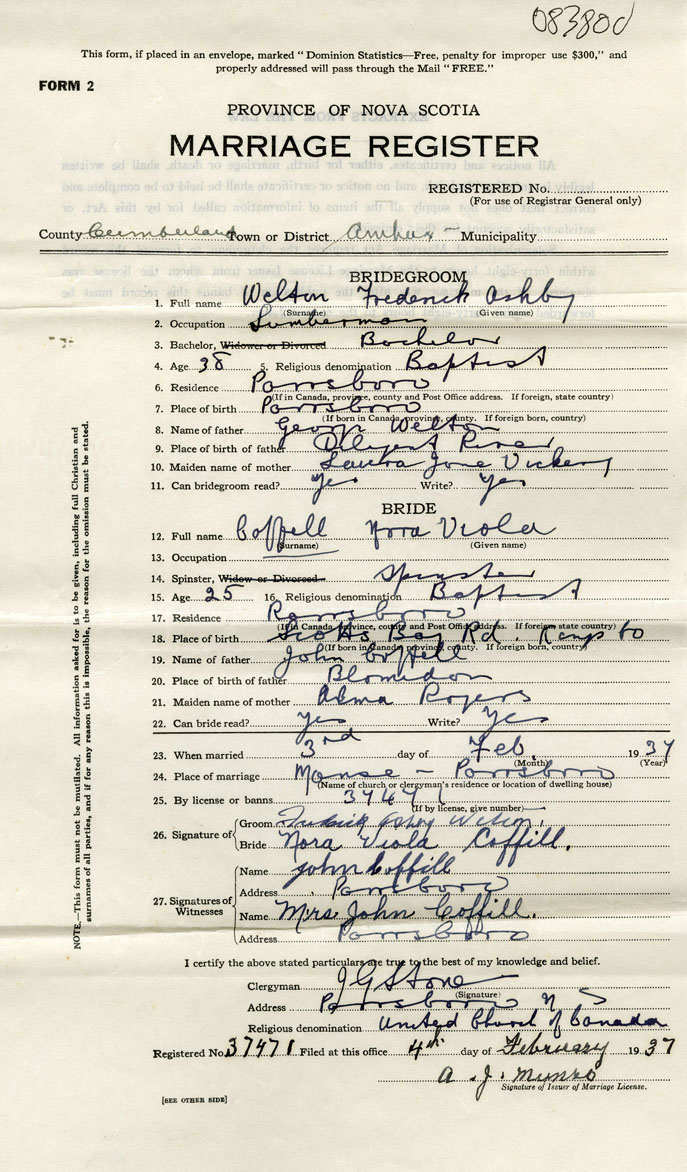 083800
This form, if placed in an envelope, marked "Dominion Statistics—Free, penalty for improper use $300," and
properly addressed will pass through the Mail "FREE."
FORM 2
PROVINCE OF NOVA SCOTIA
MARRIAGE REGISTER
REGISTERED No.
(For use of Registrar General only)
County Cumberland Town or District Amherst Municipality
BRIDEGROOM
1. Full name Welton Frederick Ashby
(Surname) (Given name)
2. Occupation Lumberman
3. Bachelor, Widower or Divorced Bachelor
4. Age 38 5. Religious denomination Baptist
6. Residence Parrsboro
(If in Canada, province, county and Post Office address. If foreign, state country)
7. Place of birth Parrsboro
(If born in Canada, province, county. If foreign born, country)
8. Name of father George Welton
9. Place of birth of father Diligent River
10. Maiden name of mother Laura Jane Vickery
11. Can bridegroom read? Yes Write? Yes
BRIDE
12. Full name Coffell Nora Viola
(Surname) (Given name)
13. Occupation
14. Spinster, Widow or Divorced Spinster
15. Age 25 16. Religious denomination Baptist
17. Residence Parrsboro
(If in Canada, province, county and Post Office address. If foreign, state country)
18. Place of birth Scotts Bay Rd. Kings Co
(If born in Canada, province, county. If foreign born, country)
19. Name of father John Coffell
20. Place of birth of father Blomidon
21. Maiden name of mother Alma Rogers
22. Can bride read? Yes Write? Yes
23. When married 3rd day of Feb. 1937
(Month) (Year)
24. Place of marriage Manse - Parrsboro
(Name of church or clergyman's residence or location of dwelling house)
25. By license or banns 37471
(If by license, give number)
26. Signature of
Groom Fredrick Ashby Welton.
Bride Nora Viola Coffill.
27. Signatures of Witnesses
Name John Coffill
Address Parrsboro
Name Mrs. John Coffill.
Address Parrsboro
I certify the above stated particulars are true to the best of my knowledge and belief.
Clergyman J G Stone
(Signature)
Address Parrsboro N S
Religious denomination United Church of Canada
Registered No. 37471 Filed at this office 4th day of February 1937
A. J. Munro
Signature of Issuer of Marriage License.
[SEE OTHER SIDE]
NOTE.—This form must not be mutilated. All information asked for is to be given, including full Christian and
surnames of all parties, and if for any reason this is impossible, the reason for the omission must be stated.